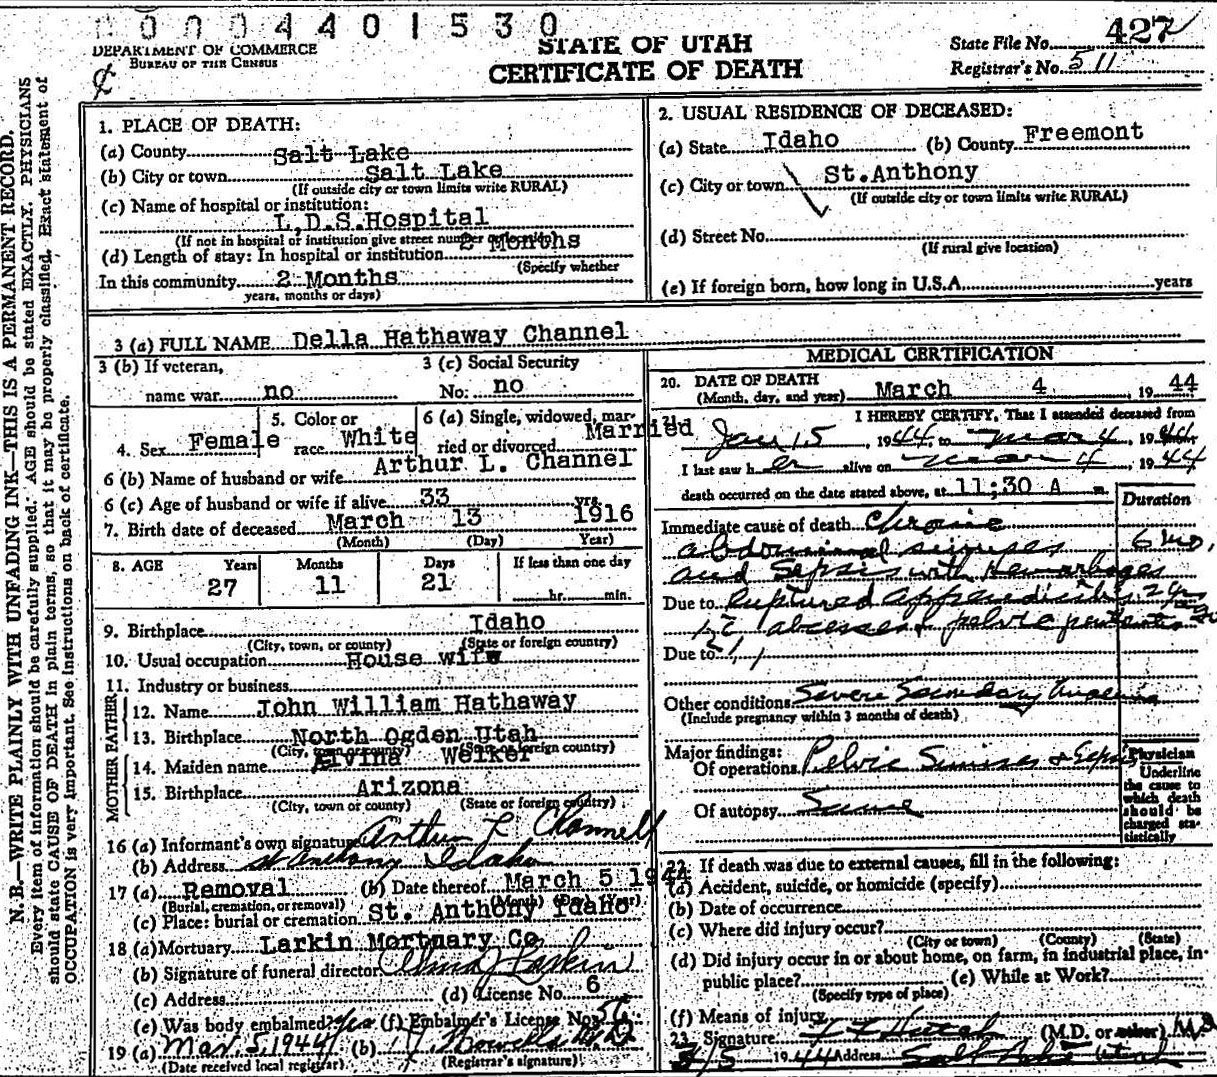 0004401530
DEPARTMENT OF COMMERCE
BUREAU OF THE CENSUS
STATE OF UTAH
CERTIFICATE OF DEATH
State File No. 427
Registrar's No. 511
N. B.—WRITE PLAINLY WITH UNFADING INK—THIS IS A PERMANENT RECORD.
Every item of information should be carefully supplied. AGE should be stated EXACTLY. PHYSICIANS
should state CAUSE OF DEATH in plain terms, so that it may be properly classified. Exact statement of
OCCUPATION is very important. See instructions on back of certificate.
1. PLACE OF DEATH:
(a) County Salt Lake
(b) City or town Salt Lake
(If outside city or town limits write RURAL)
(c) Name of hospital or institution:
L.D.S. Hospital
(If not in hospital or institution give street number
(d) Length of stay: In hospital or institution 2 Months
(Specify whether
In this community 2 Months
years, months or days)
2. USUAL RESIDENCE OF DECEASED:
(a) State Idaho (b) County Freemont
(c) City or town St.Anthony
(If outside city or town limits write RURAL)
(d) Street No.
(If rural give location)
(e) If foreign born, how long in U.S.A. years
3 (a) FULL NAME Della Hathaway Channel
3 (b) If veteran, 3 (c) Social Security
name war no No: no
4. Sex Female 5. Color or race White 6 (a) Single, widowed, married or divorced Married
6 (b) Name of husband or wife Arthur L. Channel
6 (c) Age of husband or wife if alive 33 yrs.
7. Birth date of deceased March 13 1916
(Month) (Day) Year)
8. AGE Years Months Days If less than one day
27 11 21 hr. min.
9. Birthplace Idaho
(City, town, or county) (State or foreign country)
10. Usual occupation House wife
11. Industry or business
FATHER
12. Name John William Hathaway
13. Birthplace North Ogden Utah
(City, town or county) (State or foreign country)
MOTHER
14. Maiden name Elvina Welker
15. Birthplace Arizona
(City, town or county) (State or foreign country)
16 (a) Informant's own signature Arthur L Channell
(b) Address St Anthony Idaho
17 (a) Removal (b) Date thereof March 5 1944
(Burial, cremation, or removal) (Month) (Day) (Year)
(c) Place: burial or cremation St. Anthony Idaho
18 (a) Mortuary Larkin Mortuary Co
(b) Signature of funeral director Larkin
(c) Address (d) License No. 6
(e) Was body embalmed? yes (f) Embalmer's License No. 56
19 (a) Mar. 5, 1944 (b)
(Date received local registrar) (Registrar's signature)
MEDICAL CERTIFICATION
20. DATE OF DEATH
(Month, day, and year) March 4, 1944
I HEREBY CERTIFY, That I attended deceased from
Jan 15, 1944, to Mar 4, 1944
I last saw her alive on Mar 4, 1944
death occurred on the date stated above, at 11;30 A m.
Duration
Immediate cause of death Chronic
abdominal sinuses 6 mo.
and Sepsis with hemorhages
Due to ruptured appendicitis 2 yrs
abcesses & pelvic
Due to
Other conditions Severe Secondary Anaemia
(Include pregnancy within 3 months of death)
Major findings:
Of operations Pelvic Sinuses & Sepsis
Of autopsy Same
Physician
Underline
the cause to
which death
should be
charged sta-
tistically
22. If death was due to external causes, fill in the following:
(a) Accident, suicide, or homicide (specify)
(b) Date of occurrence
(c) Where did injury occur?
(City or town) (County) (State)
(d) Did injury occur in or about home, on farm, in industrial place, in
public place? (e) While at Work?
(Specify type of place)
(f) Means of injury
23. Signature (M.D. or other) M.D.
3/5 1944 Address Salt Lake Utah